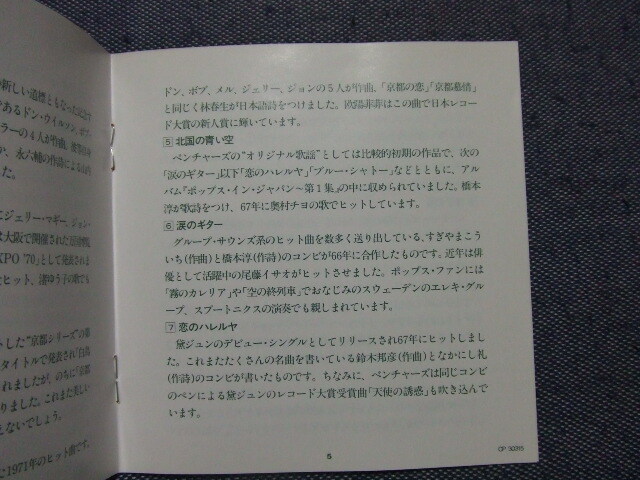 新しい道標ともなった記念す
あるドン・ウイルソン、ボブ・
ラーの4人が作曲。
か、永六輔の作詩による日
した。
ジェリー・マギー、ジョン・
は大阪で開催された
XPO '70」として発表され
ヒット、渚ゆう子の歌でも
した"京都シリーズ"の第
タイトルで発表され「白鳥
れましたが、のちに「京都
りました。これまた美しい
えないでしょう。
に1971年のヒット曲です。
ドン、ボブ、メル、ジェリー、ジョンの5人が作曲。「京都の恋」「京都慕情」
と同じく林春生が日本語詩をつけました。欧陽菲菲はこの曲で日本レコー
ド大賞の新人賞に輝いています。
5 北国の青い空
ベンチャーズの"オリジナル歌謡"としては比較的初期の作品で、次の
「涙のギター」以下「恋のハレルヤ」「ブルー・シャトー」などとともに、アル
バム『ポップス・イン・ジャパン〜第1集』の中に収められていました。橋本
淳が歌詩をつけ、67年に奥村チヨの歌でヒットしています。
6 涙のギター
グループ・サウンズ系のヒット曲を数多く送り出している、すぎやまこう
いち(作曲)と橋本淳(作詩)のコンビが66年に合作したものです。近年は俳
優として活躍中の尾藤イサオがヒットさせました。ポップス・ファンには
「霧のカレリア」や「空の終列車」でおなじみのスウェーデンのエレキ・グル
ープ、スプートニクスの演奏でも親しまれています。
7 恋のハレルヤ
黛ジュンのデビュー・シングルとしてリリースされ67年にヒットしまし
た。これまたたくさんの名曲を書いている鈴木邦彦(作曲)となかにし礼
(作詩)のコンビが書いたものです。ちなみに、ベンチャーズは同じコンビ
のペンによる黛ジュンのレコード大賞受賞曲「天使の誘惑」も吹き込んで
います。
5